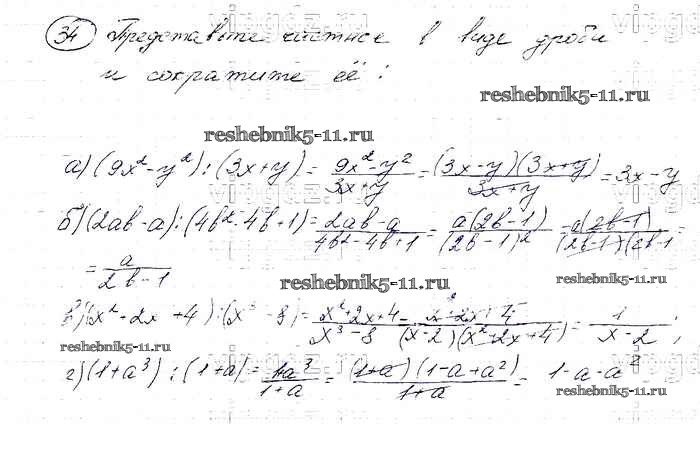 34 Представьте частное в виде дроби
и сократите её:
reshebnik5-11.ru
reshebnik5-11.ru
а) (9x²-y²):(3x+y)= 9x²-y²/3x+y = (3x-y)(3x+y)/3x+y = 3x-y
б) (2ab-a):(4b²-4b+1)= 2ab-a/4b²-4b+1 = a(2b-1)/(2b-1)² = a(2b-1)/(2b-1)(2b-1 =
= a/2b-1
reshebnik5-11.ru
reshebnik5-11.ru
в) (x²+2x+4):(x³-8)= x²+2x+4/x³-8 = x²+2x+4/(x-2)(x²+2x+4) = 1/x-2;
reshebnik5-11.ru
г) (1+a³):(1+a)= 1+a³/1+a = (1+a)(1-a+a²)/1+a = 1-a-a²
reshebnik5-11.ru